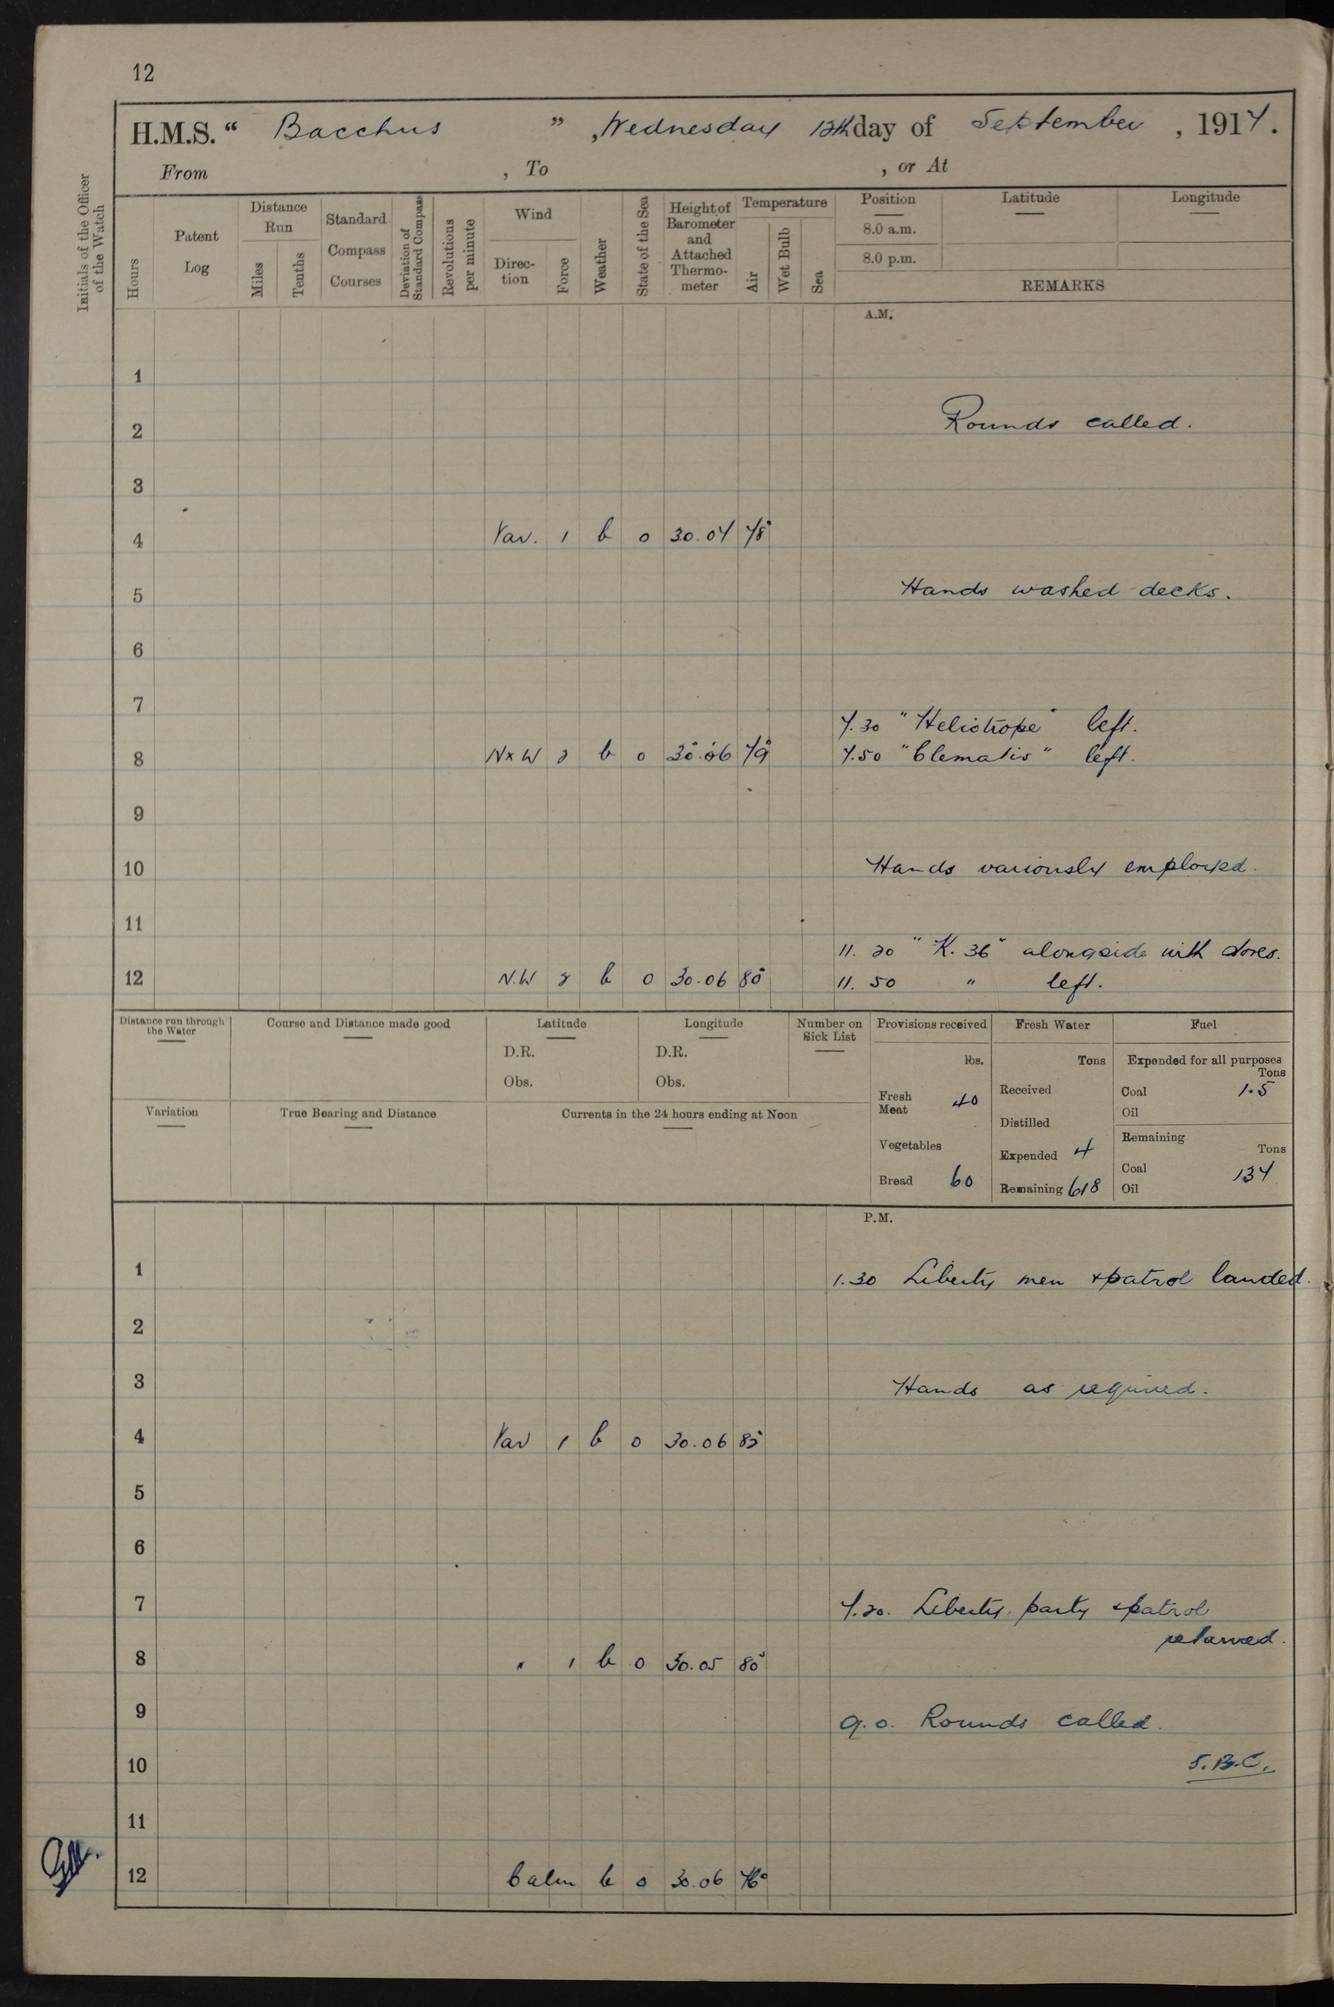 12
H.M.S. “ Bacchus ” , Wednesday 12th day of September , 1917.
From , To , or At
Initials of the Officer of the Watch
Hours
Patent Log
Distance Run
Miles
Tenths
Standard Compass Courses
Deviation of Standard Compass
Revolutions per minute
Wind
Direction
Force
Weather
State of the Sea
Height of Barometer and Attached Thermometer
Temperature
Air
Wet Bulb
Sea
Position
8.0 a.m.
8.0 p.m.
Latitude
Longitude
REMARKS
A.M.
1
2 Rounds called.
3
4 Var. 1 b 0 30.07 78°
5 Hands washed decks.
6
7
7.30 "Heliotrope" left.
8 NxW 2 b 0 30.06 79° 7.50 "Clematis" left.
9
10 Hands variously employed.
11
11.20 "K.36" alongside with stores.
12 N.W 2 b 0 30.06 80° 11.50 " left.
Distance run through the Water
Course and Distance made good
Latitude
D.R.
Obs.
Longitude
D.R.
Obs.
Number on Sick List
Variation
True Bearing and Distance
Currents in the 24 hours ending at Noon
Provisions received
lbs.
Fresh Meat 40
Vegetables
Bread 60
Fresh Water
Tons
Received
Distilled
Expended 4
Remaining 618
Fuel
Expended for all purposes
Tons
Coal 1.5
Oil
Remaining
Tons
Coal 137
Oil
P.M.
1 1.30 Liberty men & patrol landed.
2
3 Hands as required.
4 Var 1 b 0 30.06 85°
5
6
7 7.20. Liberty party & patrol
returned.
8 " 1 b 0 30.05 80°
9 9.0. Rounds called.
10 S.B.C.
11
12 Calm b 0 30.06 76°